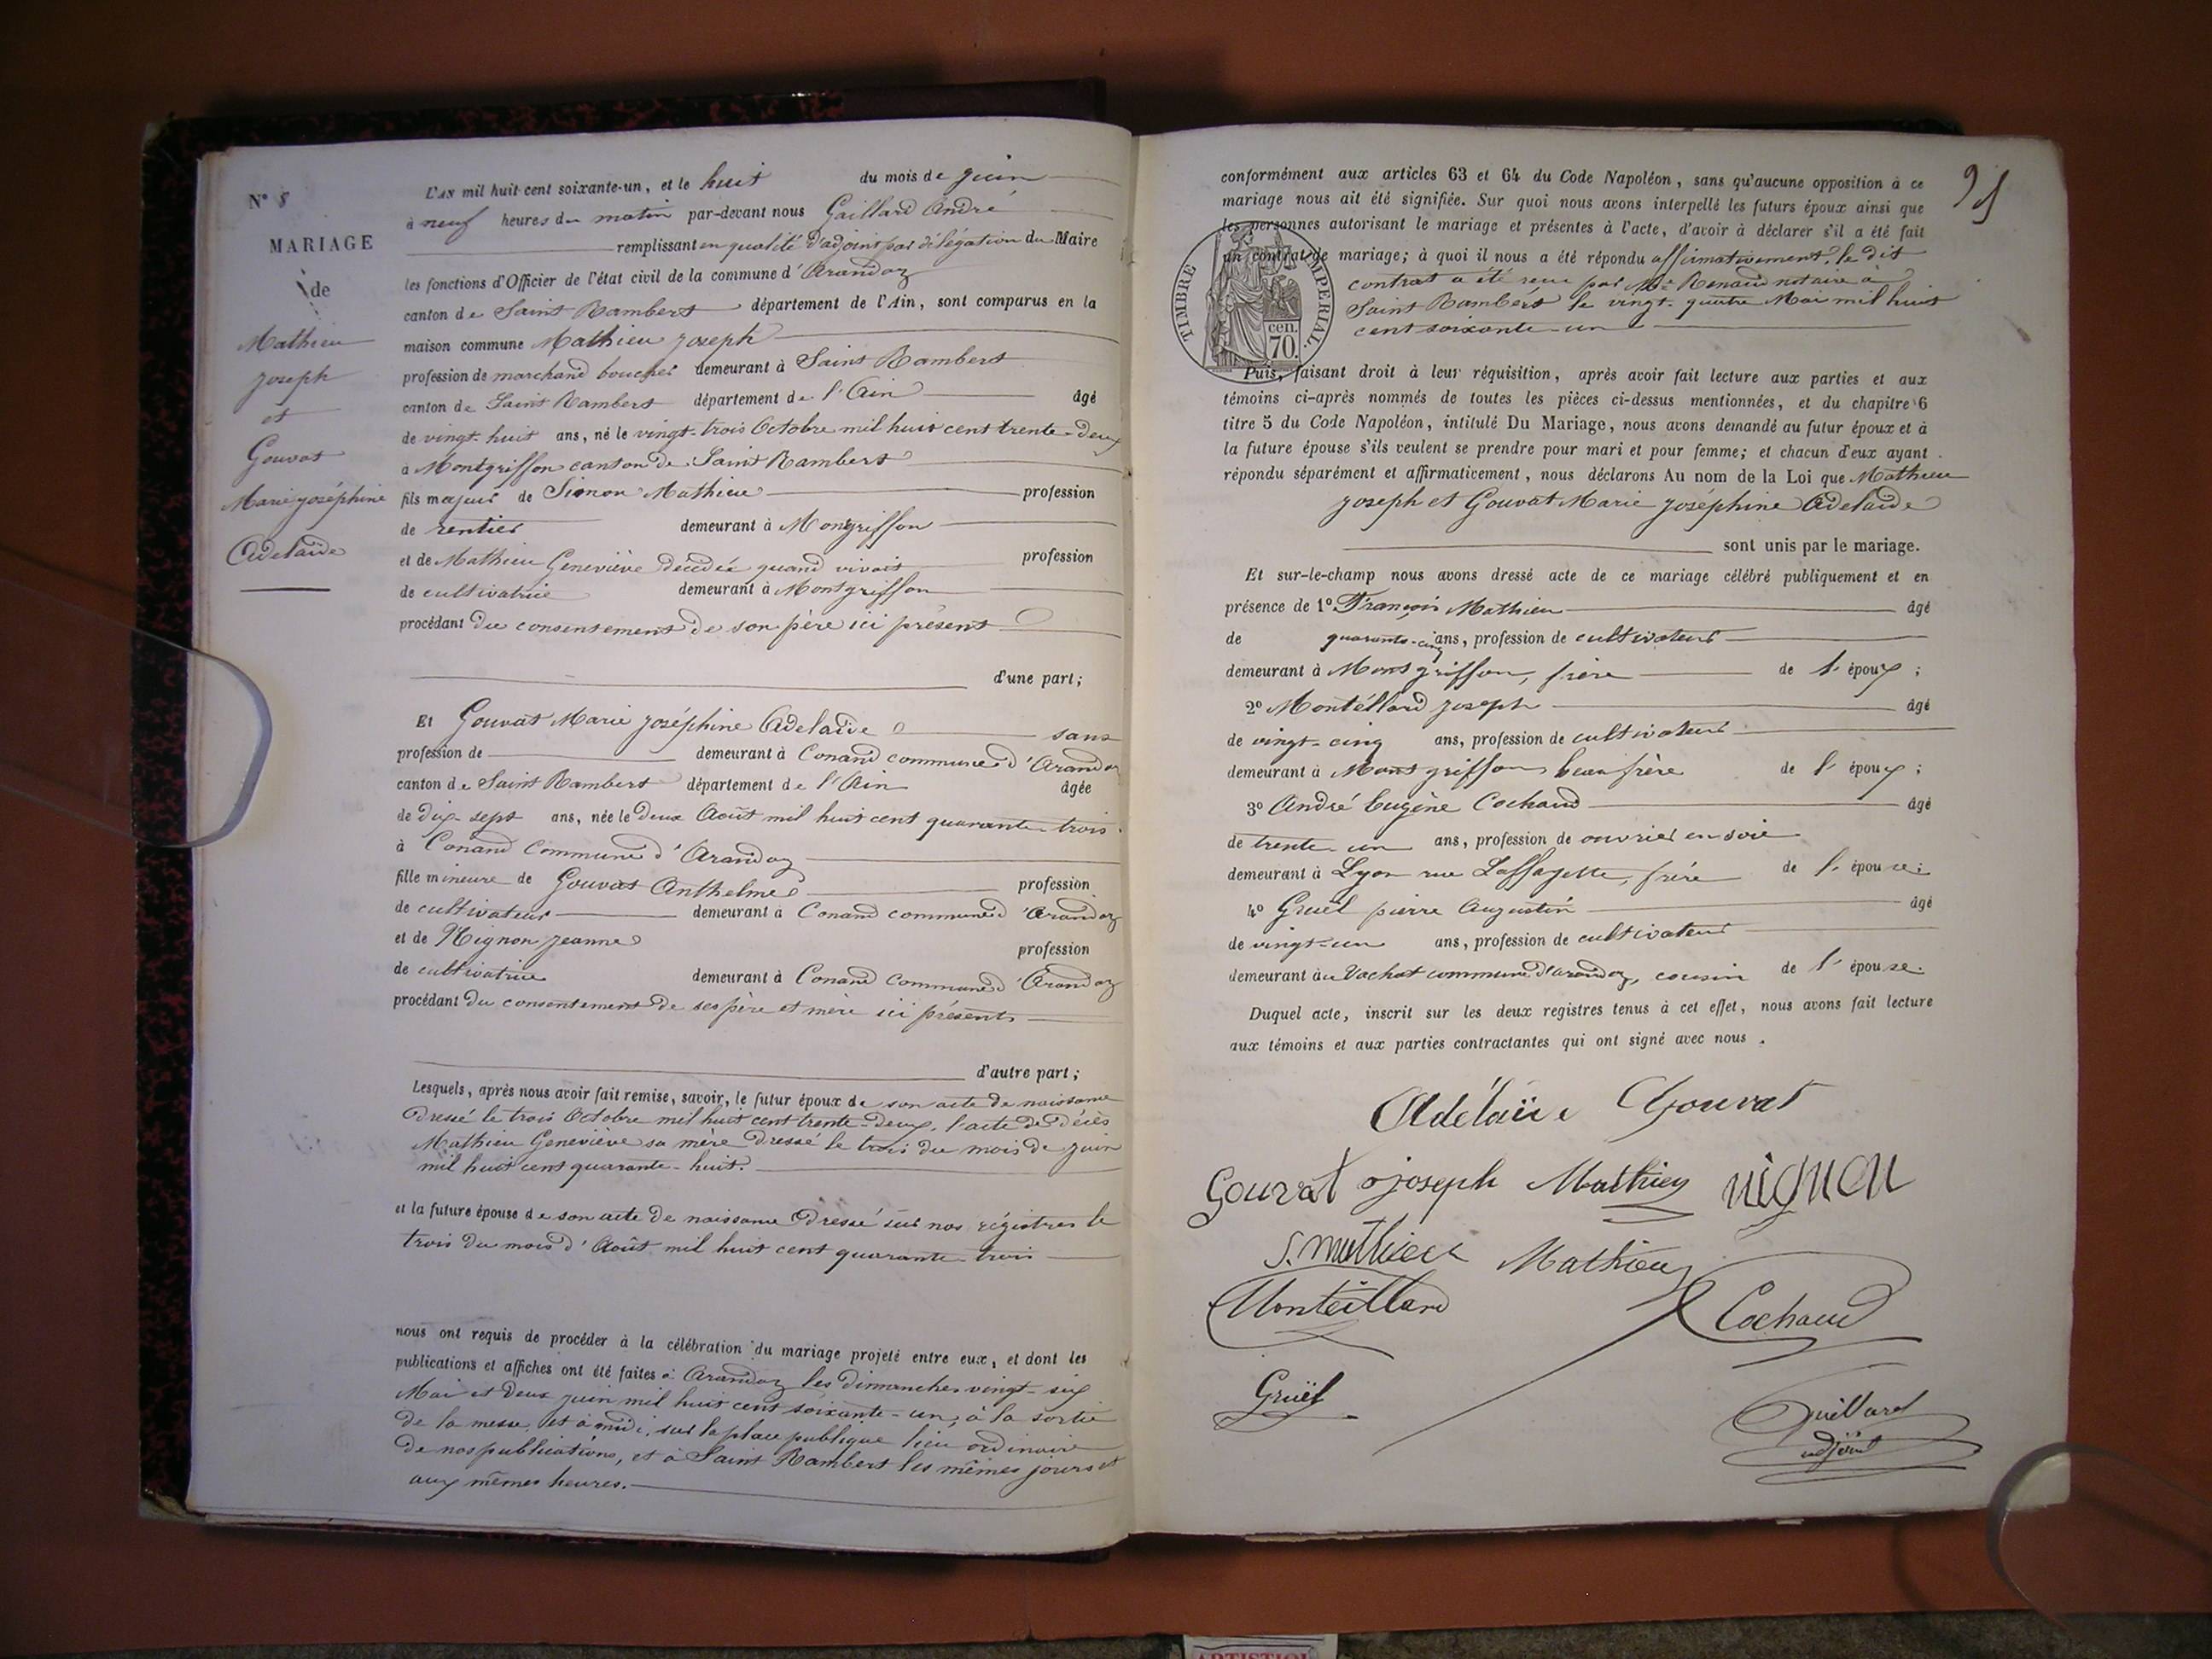 N° 8
MARIAGE
de
Mathieu
Joseph
et
Gouvat
Marie Joséphine
Adelaïde
L'AN mil huit cent soixante-un, et le huit du mois de Juin
à neuf heures du matin par-devant nous Gaillard André
remplissant en qualité d'adjoint par délégation du Maire
les fonctions d'Officier de l'état civil de la commune d'Arandaz
canton de Saint Rambert département de l'Ain, sont comparus en la
maison commune Mathieu Joseph
profession de marchand boucher demeurant à Saint Rambert
canton de Saint Rambert département de l'Ain âgé
de vingt-huit ans, né le vingt-trois Octobre mil huit cent trente-deux
à Montgriffon canton de Saint Rambert
fils majeur de Simon Mathieu profession
de rentier demeurant à Mongriffon
et de Mathieu Geneviève décédée quand vivait profession
de cultivatrice demeurant à Montgriffon
procédant du consentement de son père ici présent
d'une part;
Et Gouvat Marie Joséphine Adelaïde sans
profession de demeurant à Conand commune d'Arandaz
canton de Saint Rambert département de l'Ain âgée
de dix-sept ans, née le deux Août mil huit cent quarante-trois
à Conand Commune d'Arandaz
fille mineure de Gouvat Anthelme profession
de cultivateur demeurant à Conand commune d'Arandaz
et de Nignon Jeanne profession
de cultivatrice demeurant à Conand commune d'Arandaz
procédant du consentement de ses père et mère ici présents
d'autre part;
Lesquels, après nous avoir fait remise, savoir, le futur époux de son acte de naissance
dressé le trois Octobre mil huit cent trente-deux, l'acte de décès
Mathieu Geneviève sa mère dressé le trois du mois de juin
mil huit cent quarante-huit.
et la future épouse de son acte de naissance dressé sur nos régistres le
trois du mois d'Août mil huit cent quarante-trois
nous ont requis de procéder à la célébration du mariage projeté entre eux, et dont les
publications et affiches ont été faites à Arandaz les dimanches vingt-six
Mai et deux juin mil huit cent soixante-un, à la sortie
de la messe, et à midi, sur la place publique lieu ordinaire
de nos publications, et à Saint Rambert les mêmes jours et
aux mêmes heures.
95
conformément aux articles 63 et 64 du Code Napoléon, sans qu'aucune opposition à ce
mariage nous ait été signifiée. Sur quoi nous avons interpellé les futurs époux ainsi que
les personnes autorisant le mariage et présentes à l'acte, d'avoir à déclarer s'il a été fait
un contrat de mariage; à quoi il nous a été répondu affirmativement. le dit
contrat a été reçu par Me Renaud notaire à
Saint Rambert le vingt-quatre Mai mil huit
cent soixante-un
TIMBRE IMPERIAL.
cen.
70.
Puis, faisant droit à leur réquisition, après avoir fait lecture aux parties et aux
témoins ci-après nommés de toutes les pièces ci-dessus mentionnées, et du chapitre 6
titre 5 du Code Napoléon, intitulé Du Mariage, nous avons demandé au futur époux et à
la future épouse s'ils veulent se prendre pour mari et pour femme; et chacun d'eux ayant
répondu séparément et affirmativement, nous déclarons Au nom de la Loi que Mathieu
Joseph et Gouvat Marie Joséphine Adelaïde
sont unis par le mariage.
Et sur-le-champ nous avons dressé acte de ce mariage célébré publiquement et en
présence de 1° François Mathieu âgé
de quarante-cinq ans, profession de cultivateur
demeurant à Montgriffon, frère de l'époux;
2° Montéllard Joseph âgé
de vingt-cinq ans, profession de cultivateur
demeurant à Montgriffon beau frère de l'époux;
3° André Eugène Cochaud âgé
de trente-un ans, profession de ouvrier en soie
demeurant à Lyon rue Laffayette, frère de l'épouse;
4° Gruël pierre Augustin âgé
de vingt-un ans, profession de cultivateur
demeurant au Vachat commune d'arandaz, cousin de l'épouse.
Duquel acte, inscrit sur les deux registres tenus à cet effet, nous avons fait lecture
aux témoins et aux parties contractantes qui ont signé avec nous.
Adélaïde Gouvat
Gouvat joseph Mathieu nignon
S. mathieu Mathieu
Monteillard Cochaud
Gruël Guillard
adjoint